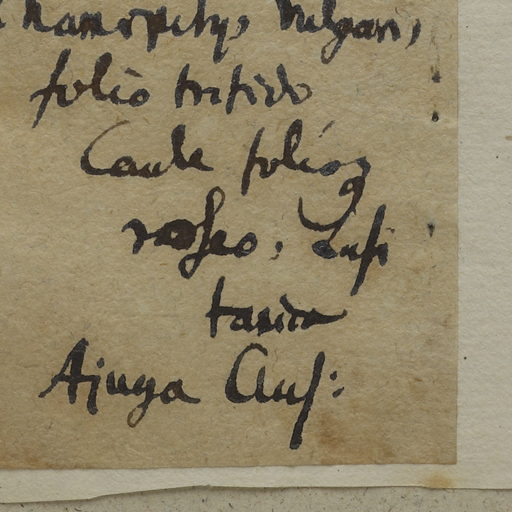 Chamæpitys vulgari,
folio trifido
Caule folioq
roseo, Lusi
tanica
Ajuga Aus: